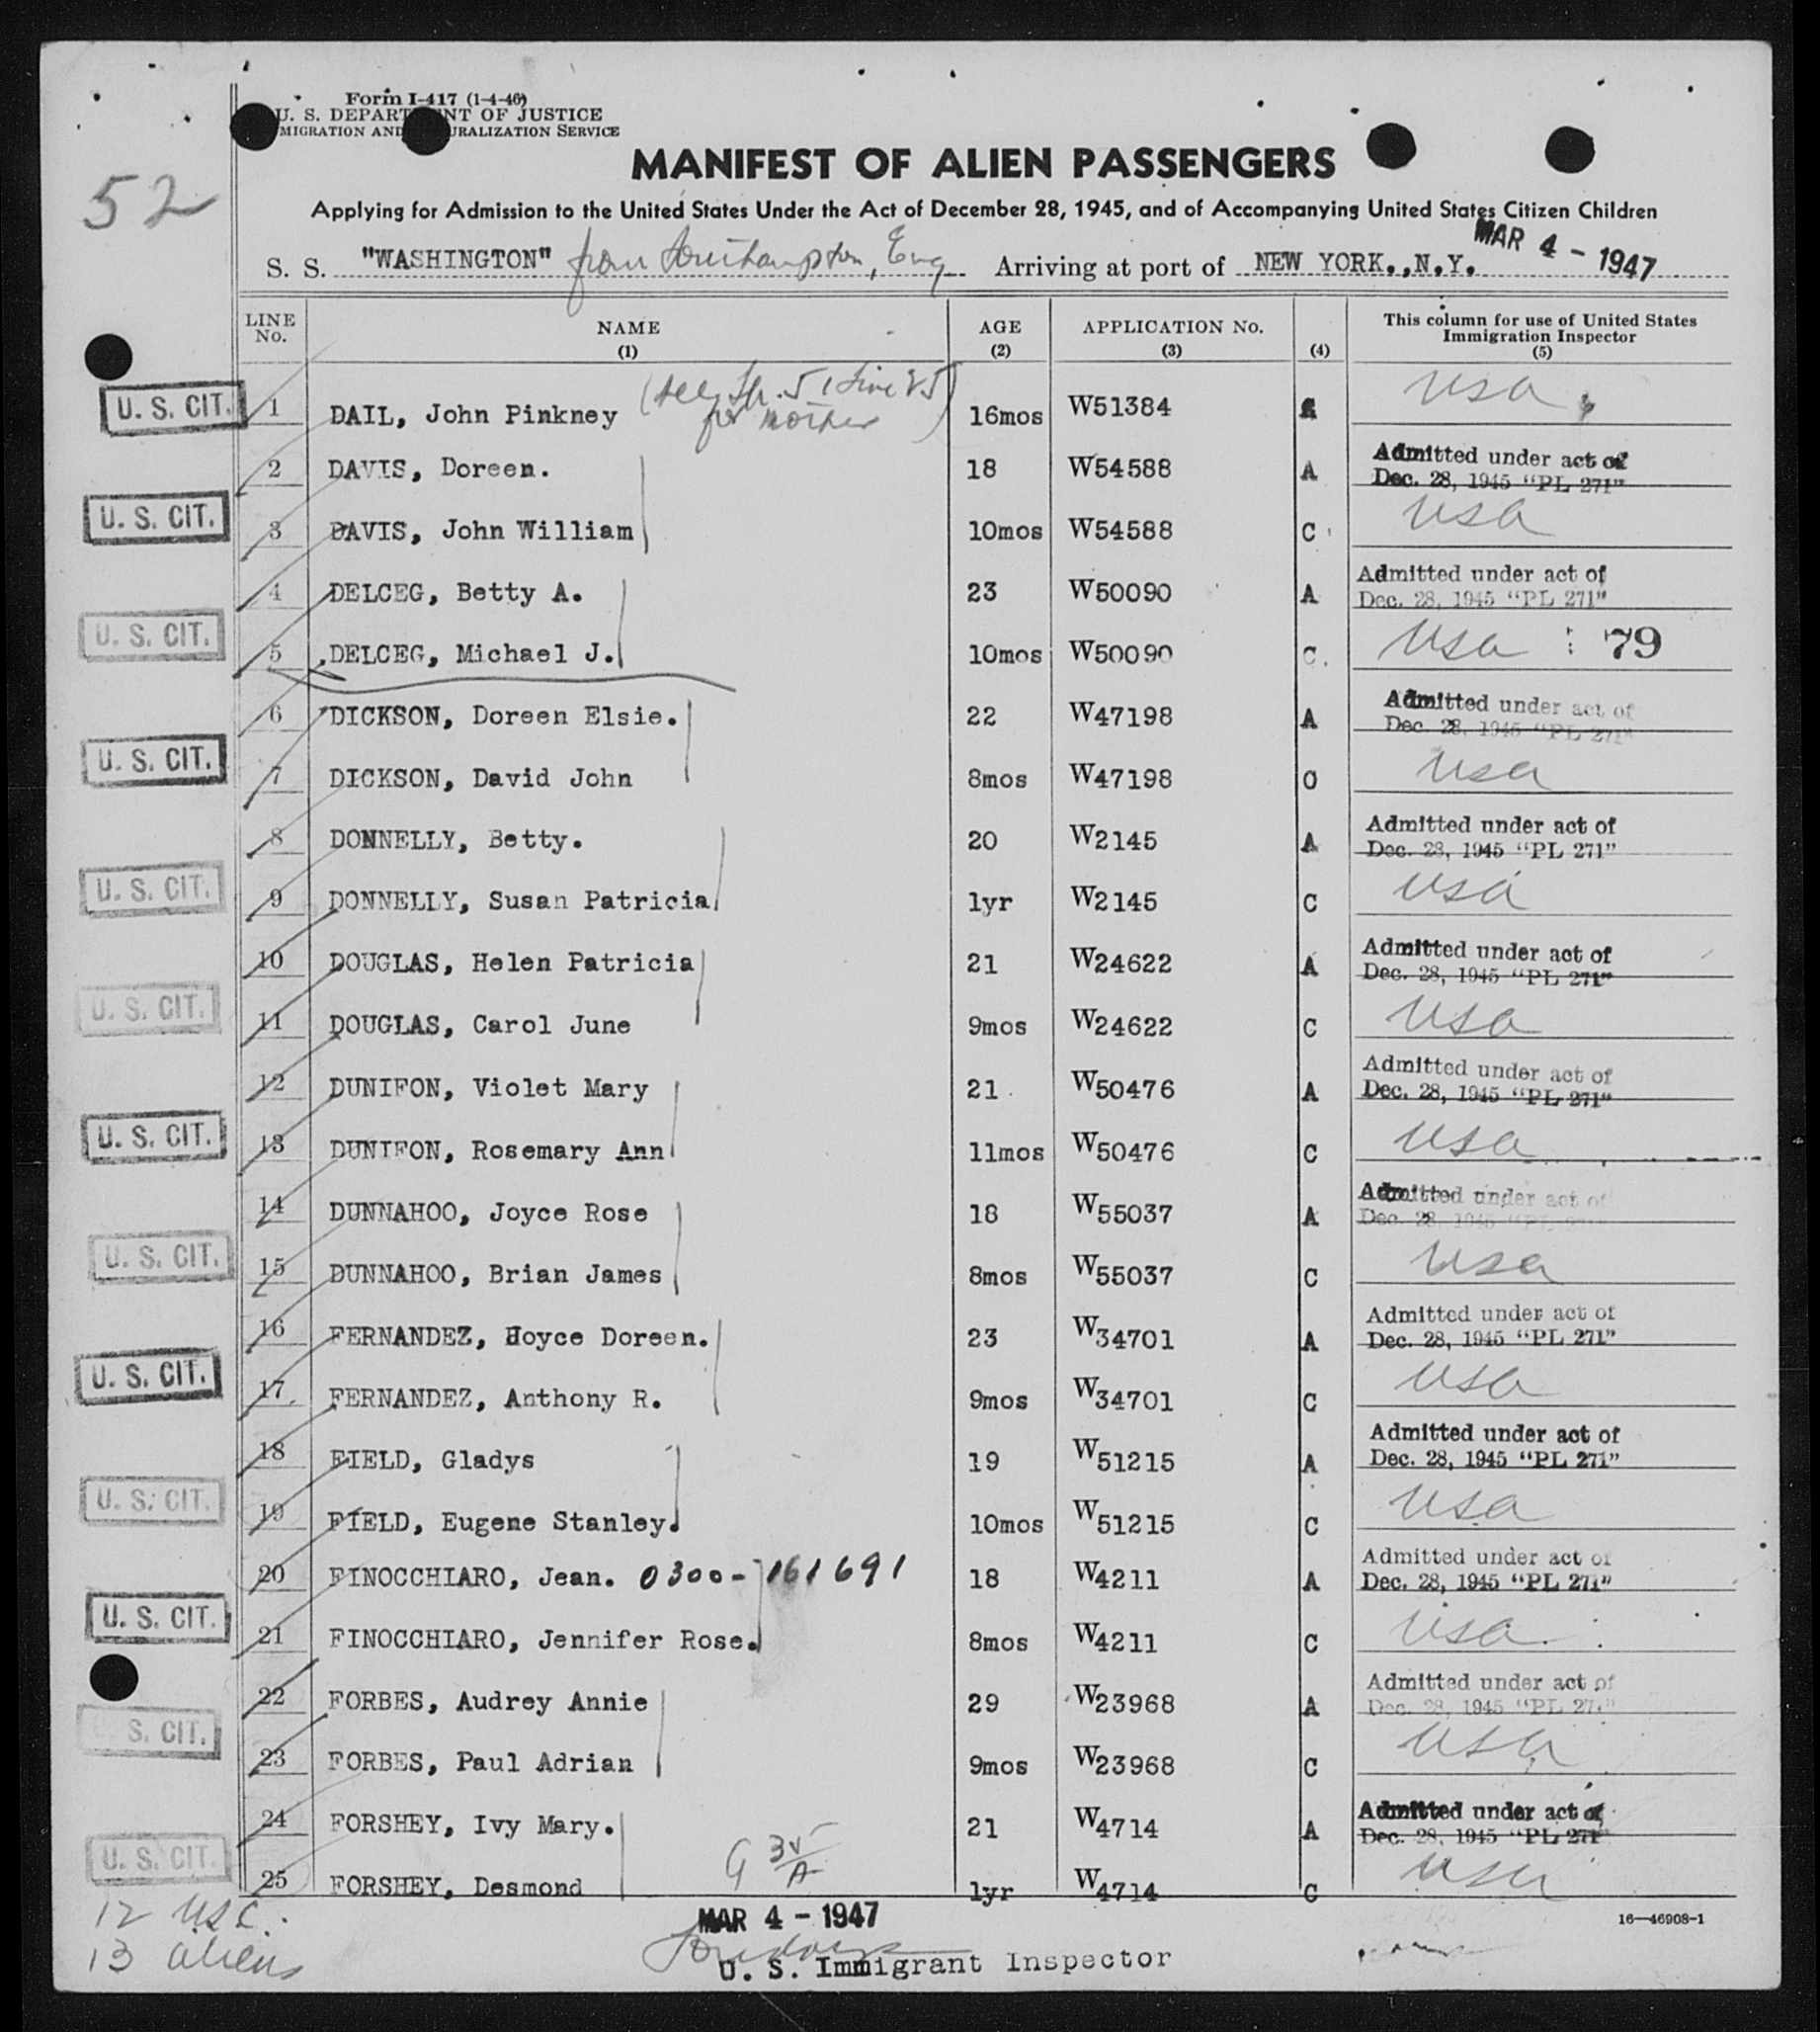 Form I-417 (1-4-46)
U. S. DEPARTMENT OF JUSTICE
IMMIGRATION AND NATURALIZATION SERVICE
52
MANIFEST OF ALIEN PASSENGERS
Applying for Admission to the United States Under the Act of December 28, 1945, and of Accompanying United States Citizen Children
S. S. "WASHINGTON" from Southampton, Eng Arriving at port of NEW YORK.,N.Y. MAR 4 - 1947
LINE No. NAME (1) AGE (2) APPLICATION No. (3) (4) This column for use of United States Immigration Inspector (5)
U. S. CIT. 1 DAIL, John Pinkney (see Sh. 51 Line 25 for mother) 16mos W51384 usa
2 DAVIS, Doreen. 18 W54588 A Admitted under act of Dec. 28, 1945 "PL 271"
U. S. CIT. 3 DAVIS, John William 10mos W54588 C usa
4 DELCEG, Betty A. 23 W50090 A Admitted under act of Dec. 28, 1945 "PL 271"
U. S. CIT. 5 DELCEG, Michael J. 10mos W50090 C. usa 79
6 DICKSON, Doreen Elsie. 22 W47198 A Admitted under act of Dec. 28, 1945 "PL 271"
U. S. CIT. 7 DICKSON, David John 8mos W47198 C usa
8 DONNELLY, Betty. 20 W2145 A Admitted under act of Dec. 28, 1945 "PL 271"
U. S. CIT. 9 DONNELLY, Susan Patricia 1yr W2145 C usa
10 DOUGLAS, Helen Patricia 21 W24622 A Admitted under act of Dec. 28, 1945 "PL 271"
U. S. CIT. 11 DOUGLAS, Carol June 9mos W24622 C usa
12 DUNIFON, Violet Mary 21 W50476 A Admitted under act of Dec. 28, 1945 "PL 271"
U. S. CIT. 13 DUNIFON, Rosemary Ann 11mos W50476 C usa
14 DUNNAHOO, Joyce Rose 18 W55037 A Admitted under act of Dec. 28, 1945 "PL 271"
U. S. CIT. 15 DUNNAHOO, Brian James 8mos W55037 C usa
16 FERNANDEZ, Joyce Doreen. 23 W34701 A Admitted under act of Dec. 28, 1945 "PL 271"
U. S. CIT. 17 FERNANDEZ, Anthony R. 9mos W34701 C usa
18 FIELD, Gladys 19 W51215 A Admitted under act of Dec. 28, 1945 "PL 271"
U. S. CIT. 19 FIELD, Eugene Stanley. 10mos W51215 C usa
20 FINOCCHIARO, Jean. 0300-161691 18 W4211 A Admitted under act of Dec. 28, 1945 "PL 271"
U. S. CIT. 21 FINOCCHIARO, Jennifer Rose. 8mos W4211 C usa
22 FORBES, Audrey Annie 29 W23968 A Admitted under act of Dec. 28, 1945 "PL 271"
S. CIT. 23 FORBES, Paul Adrian 9mos W23968 C usa
24 FORSHEY, Ivy Mary. 21 W4714 A Admitted under act of Dec. 28, 1945 "PL 271"
U. S. CIT. 25 FORSHEY, Desmond 1yr W4714 C usa
12 USC.
13 aliens
MAR 4 - 1947
16—46908-1
U. S. Immigrant Inspector